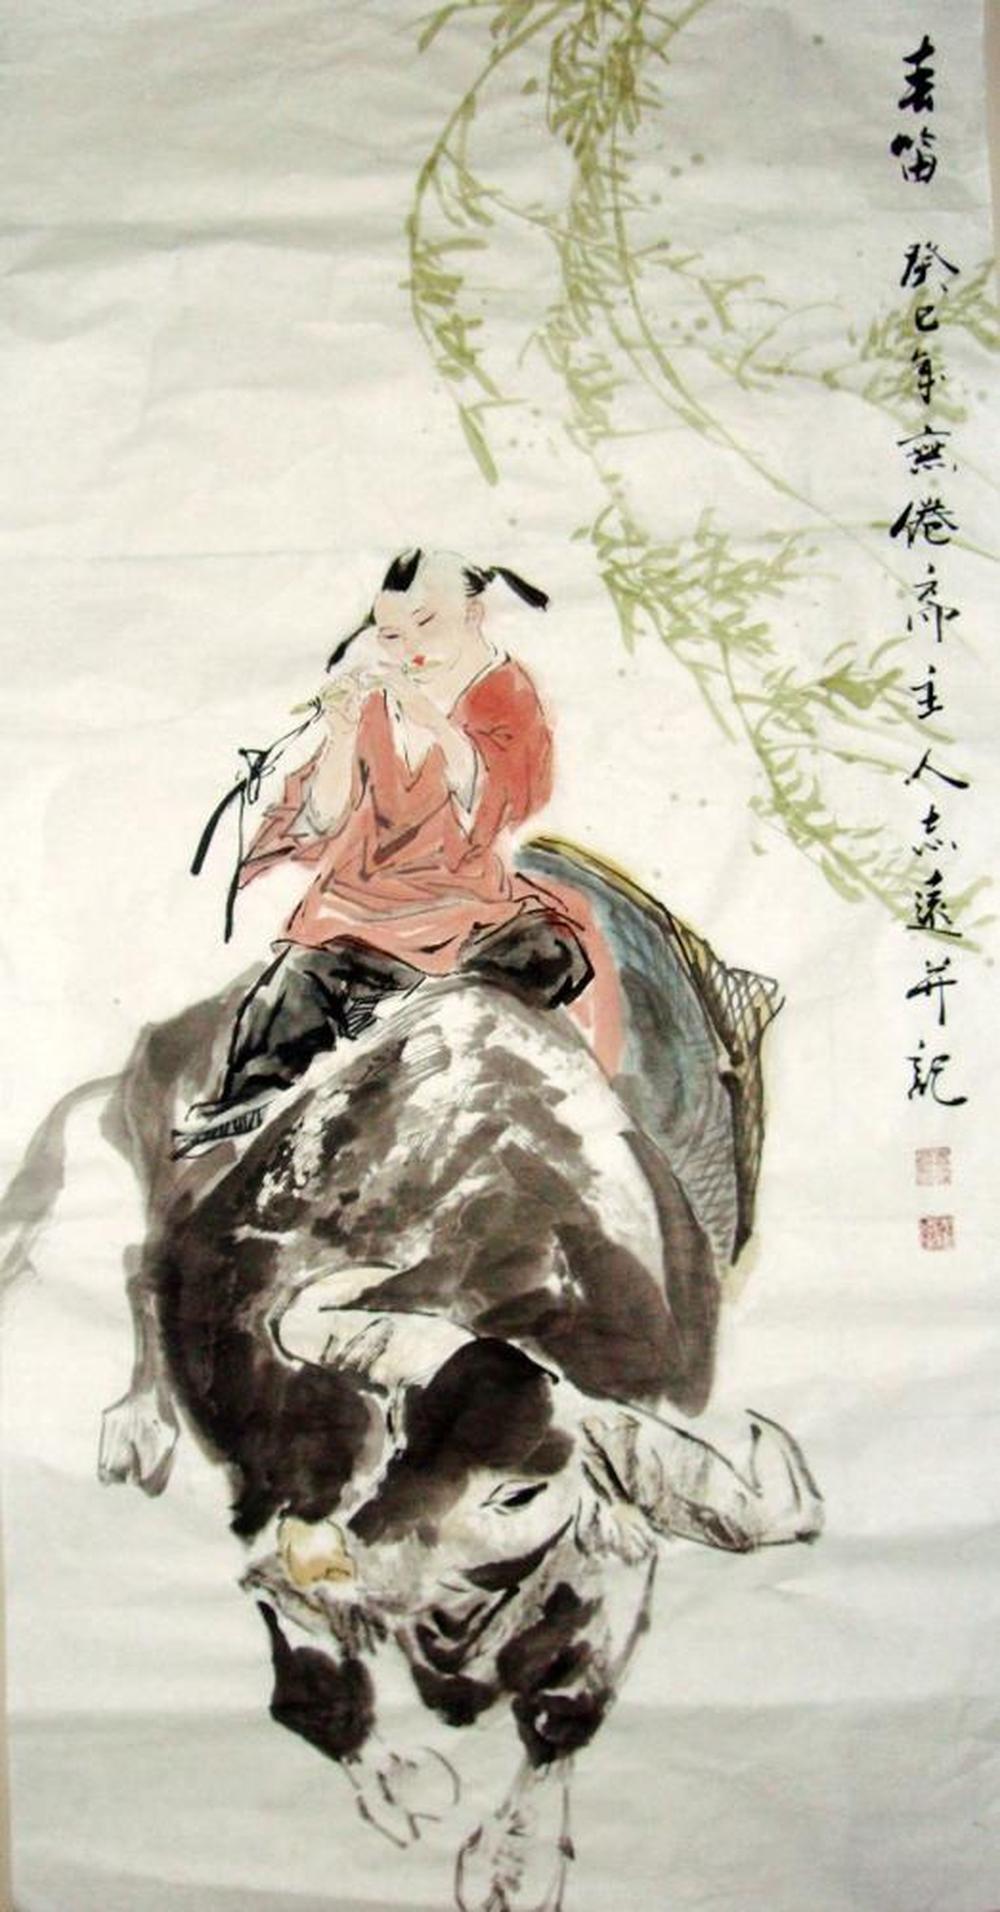 春笛 癸巳年無倦齋主人志遠并記